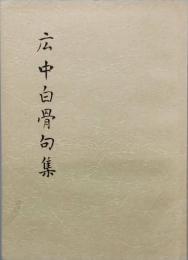 広中白骨句集